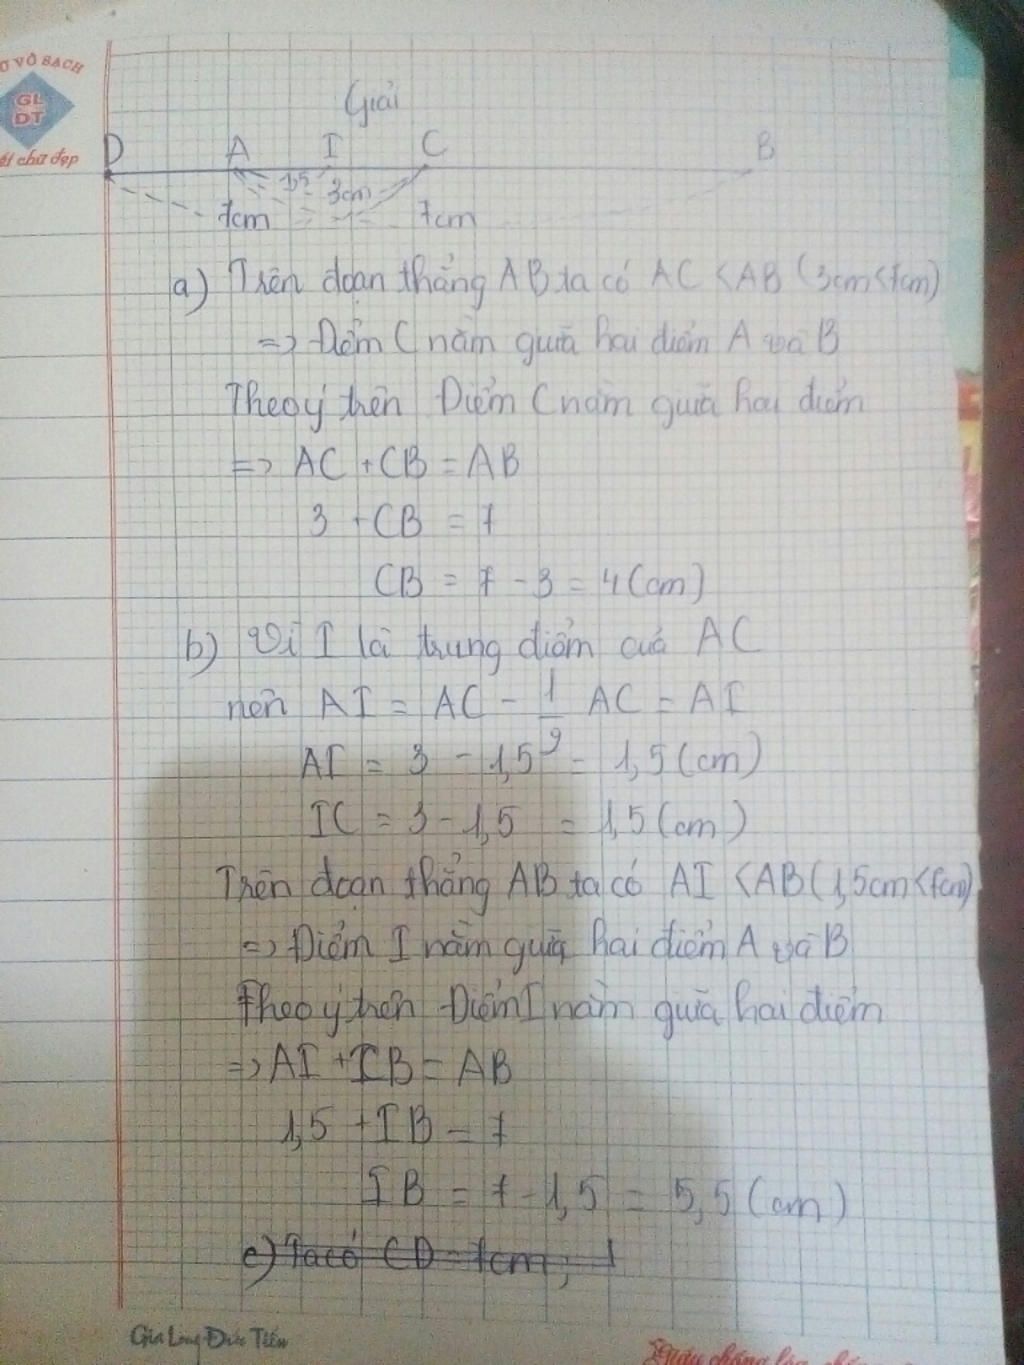 Ở VÔ SẠCH
GL
DT
ết chữ đẹp
Giải
D A I C B
1,5 3cm
7cm 7cm
a) Trên đoạn thẳng AB ta có AC < AB (3cm<7cm)
=> Điểm C nằm giữa hai điểm A và B
Theo ý trên Điểm C nằm giữa hai điểm
=> AC + CB = AB
3 + CB = 7
CB = 7 - 3 = 4 (cm)
b) Vì I là trung điểm của AC
nên AI = AC - 1/2 AC = AI
AI = 3 - 1,5 = 1,5 (cm)
IC = 3 - 1,5 = 1,5 (cm)
Trên đoạn thẳng AB ta có AI < AB (1,5cm<7cm)
=> Điểm I nằm giữa hai điểm A và B
Theo ý trên Điểm I nằm giữa hai điểm
=> AI + IB = AB
1,5 + IB = 7
IB = 7 - 1,5 = 5,5 (cm)
c) Ta có CD = 7cm ; 1
Gia Long Đức Tiến